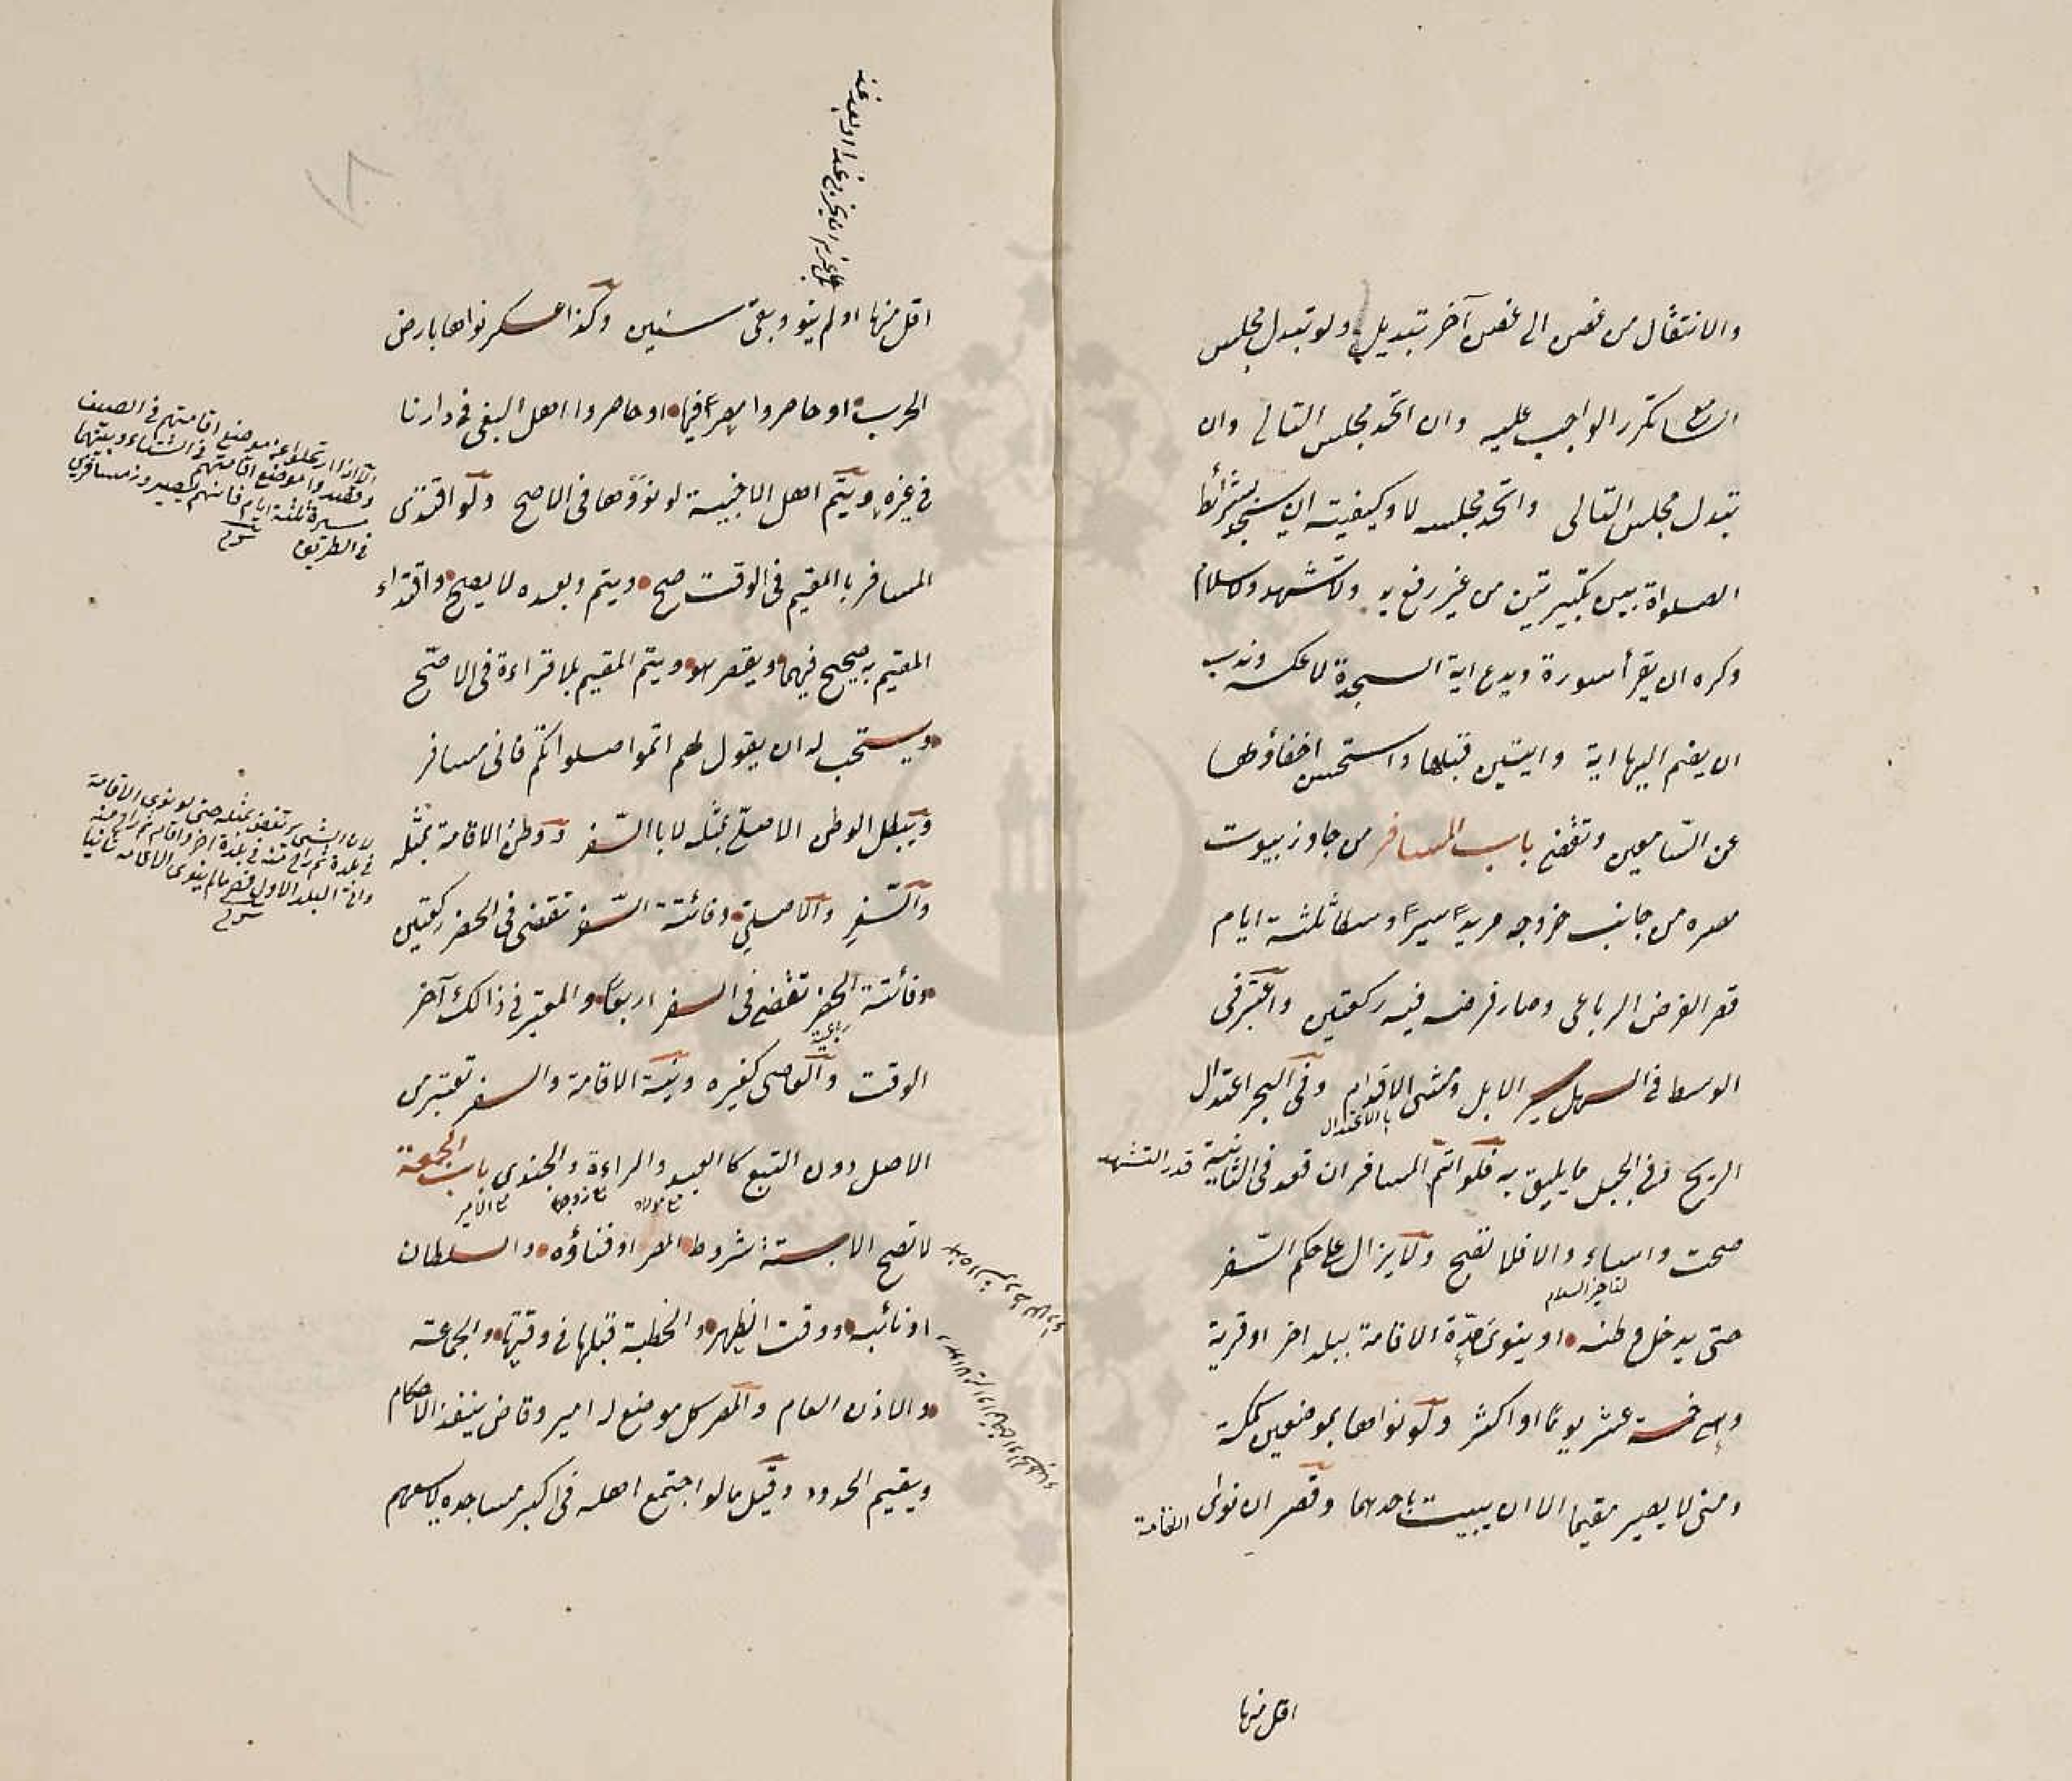 والانتقال من غصن الى غصن آخر تبديل ولو تبدل مجلس
السامع تكرر الواجب عليه وان اتحد مجلس التالى وان
تبدل مجلس التالى واتحد مجلسه لا وكيفيته ان يسجد بشرائط
الصلواة بين تكبيرتين من غير رفع يد ولا تشهد ولا سلام
وكره ان يقرأ سورة ويدع اية السجدة لا عكسه وندب
ان يضم اليها اية وايتين قبلها واستحسن اخفاؤها
عن السامعين وتقضى باب المسافر من جاوز بيوت
مصره من جانب خروجه مريدا سيرا وسطا ثلثة ايام
قصر الفرض الرباعى وصار فرضه فيه ركعتين واعتبر فى
الوسط فى السهل سير الابل ومشى الاقدام وفى البحر اعتدال
الريح وفى الجبل ما يليق به فلو اتم المسافر ان قعد فى الثانية قدر التشهد
صحت واساء والا فلا تصح ولا يزال على حكم السفر
لتأخير السلام
حتى يدخل وطنه او ينوى مدة الاقامة ببلد اخر او قرية
وهى خمسة عشر يوما او اكثر ولو نواها بموضعين كمكة
ومنى لا يصير مقيما الا ان يبيت باحدهما وقصر ان نوى
اقل منها
اقل منها او لم ينو وبقى سنين وكذا عسكر نواها بارض
الحرب او حاصروا مصرا فيها او حاصروا اهل البغى فى دارنا
فى غيره ويتم اهل الاخبية لو نووها فى الاصح ولو اقتدى
المسافر بالمقيم فى الوقت صح ويتم وبعده لا يصح واقتداء
المقيم به صحيح فيهما ويقصر هو ويتم المقيم بلا قراءة فى الاصح
ويستحب له ان يقول لهم اتموا صلواتكم فانى مسافر
ويبطل الوطن الاصلى بمثله لا بالسفر ووطن الاقامة بمثله
والسفر والاصلى وفائتة السفر تقضى فى الحضر ركعتين
وفائتة الحضر تقضى فى السفر اربعا والمعتبر فى ذالك آخر
الوقت والعاصى كغيره ونية الاقامة والسفر تعتبر من
الاصل دون التبع كالعبد والمراءة والجندى باب الجمعة
مع مولاه مع زوجها مع الامير
لا تصح الا بستة شروط المصر او فناؤه والسلطان
او نائبه ووقت الظهر والخطبة قبلها فى وقتها والجماعة
والاذن العام والمصر كل موضع له امير وقاض ينفذ الاحكام
ويقيم الحدود وقيل ما لو اجتمع اهله فى اكبر مساجده لا يسعهم
الا اذا ارتحلوا عن موضع اقامتهم فى الصيف
وقصدوا موضع اقامتهم فى الشتاء وبينهما
مسيرة ثلثة ايام فانهم يصيرون مسافرين
فى الطريق